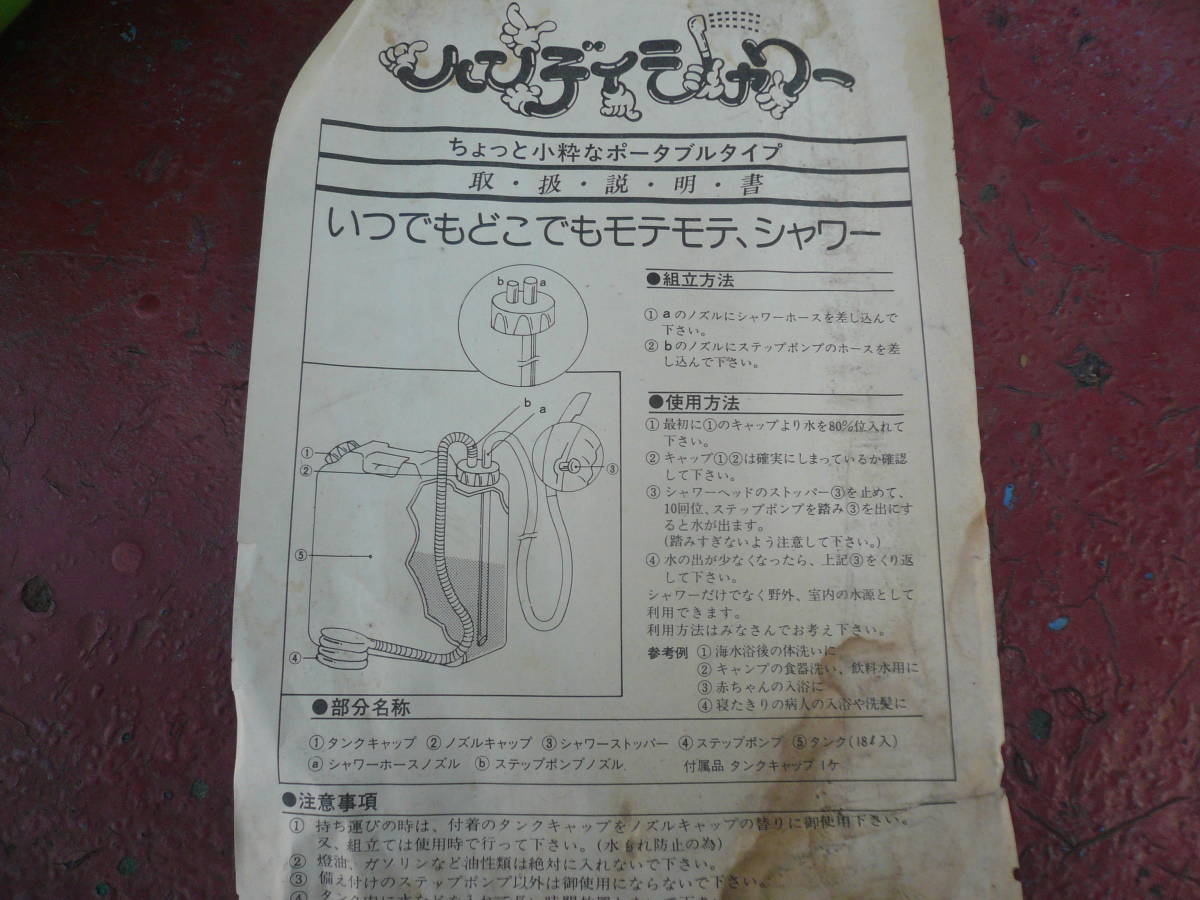 ハンディシャワー
ちょっと小粋なポータブルタイプ
取・扱・説・明・書
いつでもどこでもモテモテ、シャワー
b a
b
a
①
②
③
⑤
④
●組立方法
① aのノズルにシャワーホースを差し込んで
下さい。
② bのノズルにステップポンプのホースを差
し込んで下さい。
●使用方法
① 最初に①のキャップより水を80%位入れて
下さい。
② キャップ①②は確実にしまっているか確認
して下さい。
③ シャワーヘッドのストッパー③を止めて、
10回位、ステップポンプを踏み③を出にす
ると水が出ます。
(踏みすぎないよう注意して下さい。)
④ 水の出が少なくなったら、上記③をくり返
して下さい。
シャワーだけでなく野外、室内の水源として
利用できます。
利用方法はみなさんでお考え下さい。
参考例 ① 海水浴後の体洗いに
② キャンプの食器洗い、飲料水用に
③ 赤ちゃんの入浴に
④ 寝たきりの病人の入浴や洗髪に
●部分名称
① タンクキャップ ② ノズルキャップ ③ シャワーストッパー ④ ステップポンプ ⑤ タンク(18ℓ入)
ⓐ シャワーホースノズル ⓑ ステップポンプノズル 付属品 タンクキャップ 1ケ
●注意事項
① 持ち運びの時は、付着のタンクキャップをノズルキャップの替りに御使用下さい。
又、組立ては使用時で行って下さい。(水もれ防止の為)
② 燈油、ガソリンなど油性類は絶対に入れないで下さい。
③ 備え付けのステップポンプ以外は御使用にならないで下さい。
④ タンク内に水などを入れて長い時間放置しないで下さい